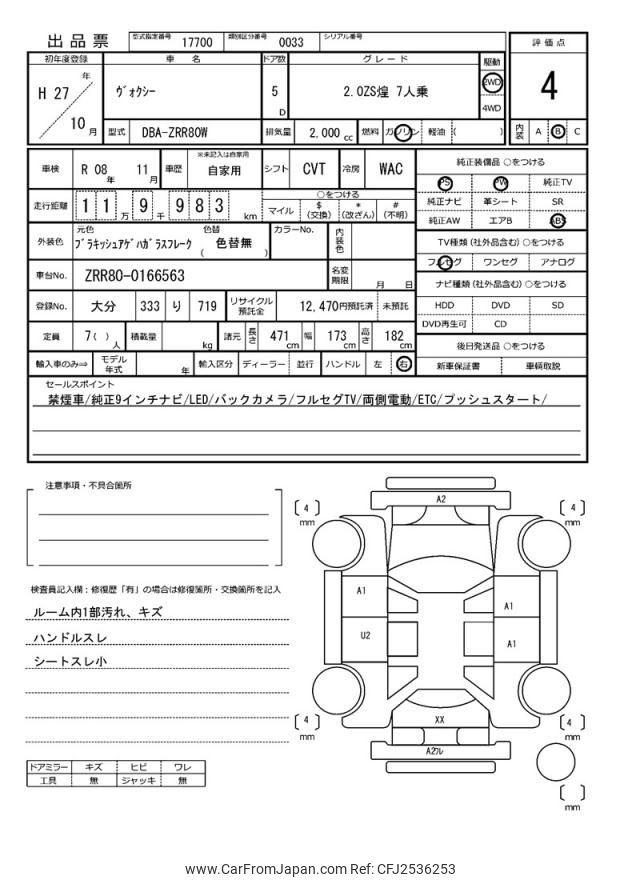 出品票
型式指定番号 17700 類別区分番号 0033 シリアル番号
評価点
4
初年度登録 車名 ドア数 グレード 駆動
H 27 年 10 月
ヴォクシー 5 D 2.0ZS煌 7人乗 2WD
4WD
型式 DBA-ZRR80W 排気量 2,000 cc 燃料 ガソリン 軽油 ( )
内装 A B C
車検 R 08 年 11 月 車歴 ※未記入は自家用 自家用 シフト CVT 冷房 WAC
走行距離 1 1 万 9 千 9 8 3 km
○をつける
マイル $(交換) *(改ざん) #(不明)
外装色 元色 ブラキッシュアゲハガラスフレーク 色替 ( 色替無 ) カラーNo. 内装色
車台No. ZRR80-0166563 名変期限 月 日
登録No. 大分 333 り 719 リサイクル預託金 12,470円預託済 未預託
定員 7( ) 人 積載量 kg 諸元 長さ 471 cm 幅 173 cm 高さ 182 cm
輸入車のみ⇒ モデル年式 年 輸入区分 ディーラー 並行 ハンドル 左 右
純正装備品 ○をつける
PS PW 純正TV
純正ナビ 革シート SR
純正AW エアB ABS
TV種類 (社外品含む) ○をつける
フルセグ ワンセグ アナログ
ナビ種類 (社外品含む) ○をつける
HDD DVD SD
DVD再生可 CD
後日発送品 ○をつける
新車保証書 車輌取説
セールスポイント
禁煙車/純正9インチナビ/LED/バックカメラ/フルセグTV/両側電動/ETC/プッシュスタート/
注意事項・不具合箇所
検査員記入欄：修復歴「有」の場合は修復箇所・交換箇所を記入
ルーム内1部汚れ、キズ
ハンドルスレ
シートスレ小
ドアミラー キズ ヒビ ワレ
工具 無 ジャッキ 無
A2
[ 4 ] mm
[ 4 ] mm
A1
A1
U2
A1
XX
[ 4 ] mm
[ 4 ] mm
A2フレ
[ ] mm
www.CarFromJapan.com Ref: CFJ2536253